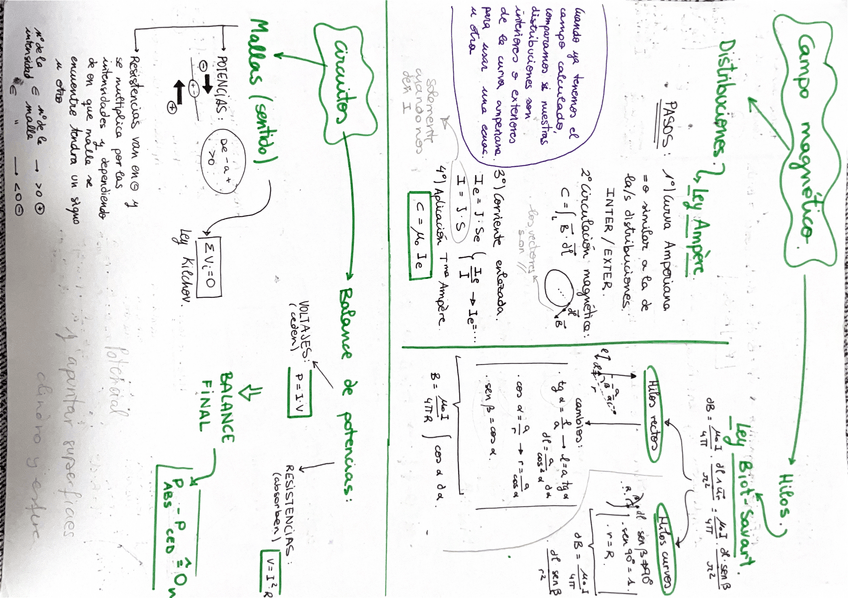 Campo magnético
Distribuciones.
↳ Ley Ampère
PASOS:
1º) Curva Amperiana
= o similar a la de
la/s distribuciones.
INTER / EXTER.
2º Circulación magnética:
C = ∫L B⃗ · dl⃗
los vectores
son //
3º) Corriente enlazada.
I = J · S
Ie = J · Se
4º) Aplicación Tma Ampère.
C = μ₀ Ie
Solamente
cuando nos
den I
Cuando ya tenemos el
campo calculado,
comparamos si nuestras
distribuciones son
interiores o exteriores
de la curva amperiana
para usar una ecuac.
u otra
Hilos.
Ley Biot-Savart.
dB = μ₀·I/4π · dl⃗ ∧ u⃗r/r² = μ₀ I/4π · dl · sen β/r²
Hilos rectos
cambios:
· tg α = l/a → l = a tg α
dl = a/cos² α dα
· cos α = a/r → r = a/cos α
· sen β = cos α.
B = μ₀ I/4πR ∫ cos α dα.
Hilos curvos
· sen 90º = 1.
· r = R.
dB = μ₀ · I/4π · dl sen β/r²
Circuitos
Mallas (sentido)
POTENCIAS:
De - a +
> 0
Resistencias van en ⊖ y
se multiplica por las
intensidades y dependiendo
de en que malla se
encuentre tendrá un signo
u otro
nº de la intensidad ∈ nº de la malla → > 0 ⊕
∉ " → < 0 ⊖
ΣVi = 0
Ley Kilchov.
Balance de potencias:
VOLTAJES:
(ceden)
P = I · V
RESISTENCIAS:
(absorben)
V = I² R
BALANCE
FINAL
P ABS - P CED = 0